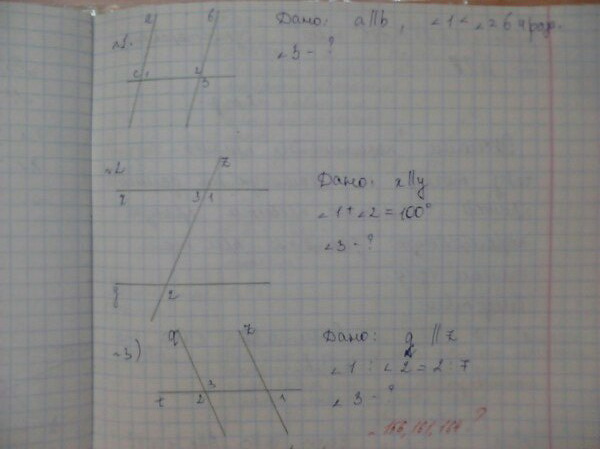 №1. a b Дано: a||b, ∠1 < ∠2 в 4 раз.
c 1 2 3
∠3 - ?
№2 z
x 3 1
Дано: x||y
∠1 + ∠2 = 100°
∠3 - ?
y 2
№3) q z
Дано: q || z
∠1 : ∠2 = 2 : 7
t 2 3 1
∠3 - ?
?